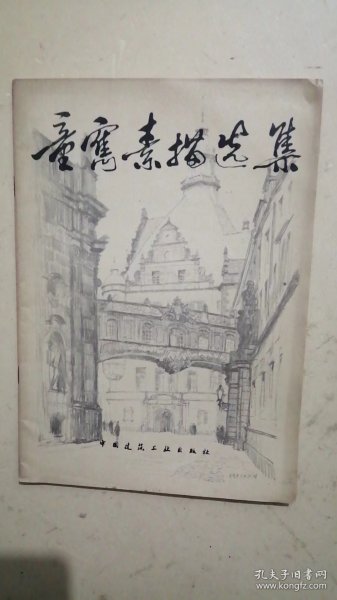 童寯素描选集
中国建筑工业出版社
孔夫子旧书网
www.kongfz.com